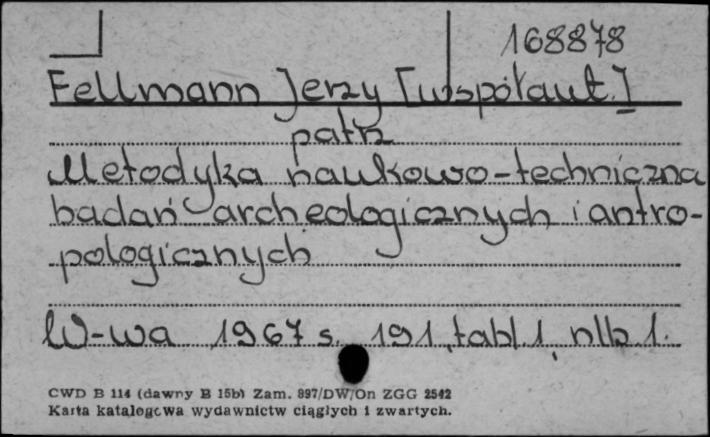 168878
Fellmann Jerzy [współaut.]
patrz
Metodyka naukowo-techniczna
badań archeologicznych i antro-
pologicznych
W-wa 1967 s. 191, tabl. 1, nlb 1.
CWD B 114 (dawny B 15b) Zam. 897/DW/On ZGG 2542
Karta katalogowa wydawnictw ciągłych i zwartych.